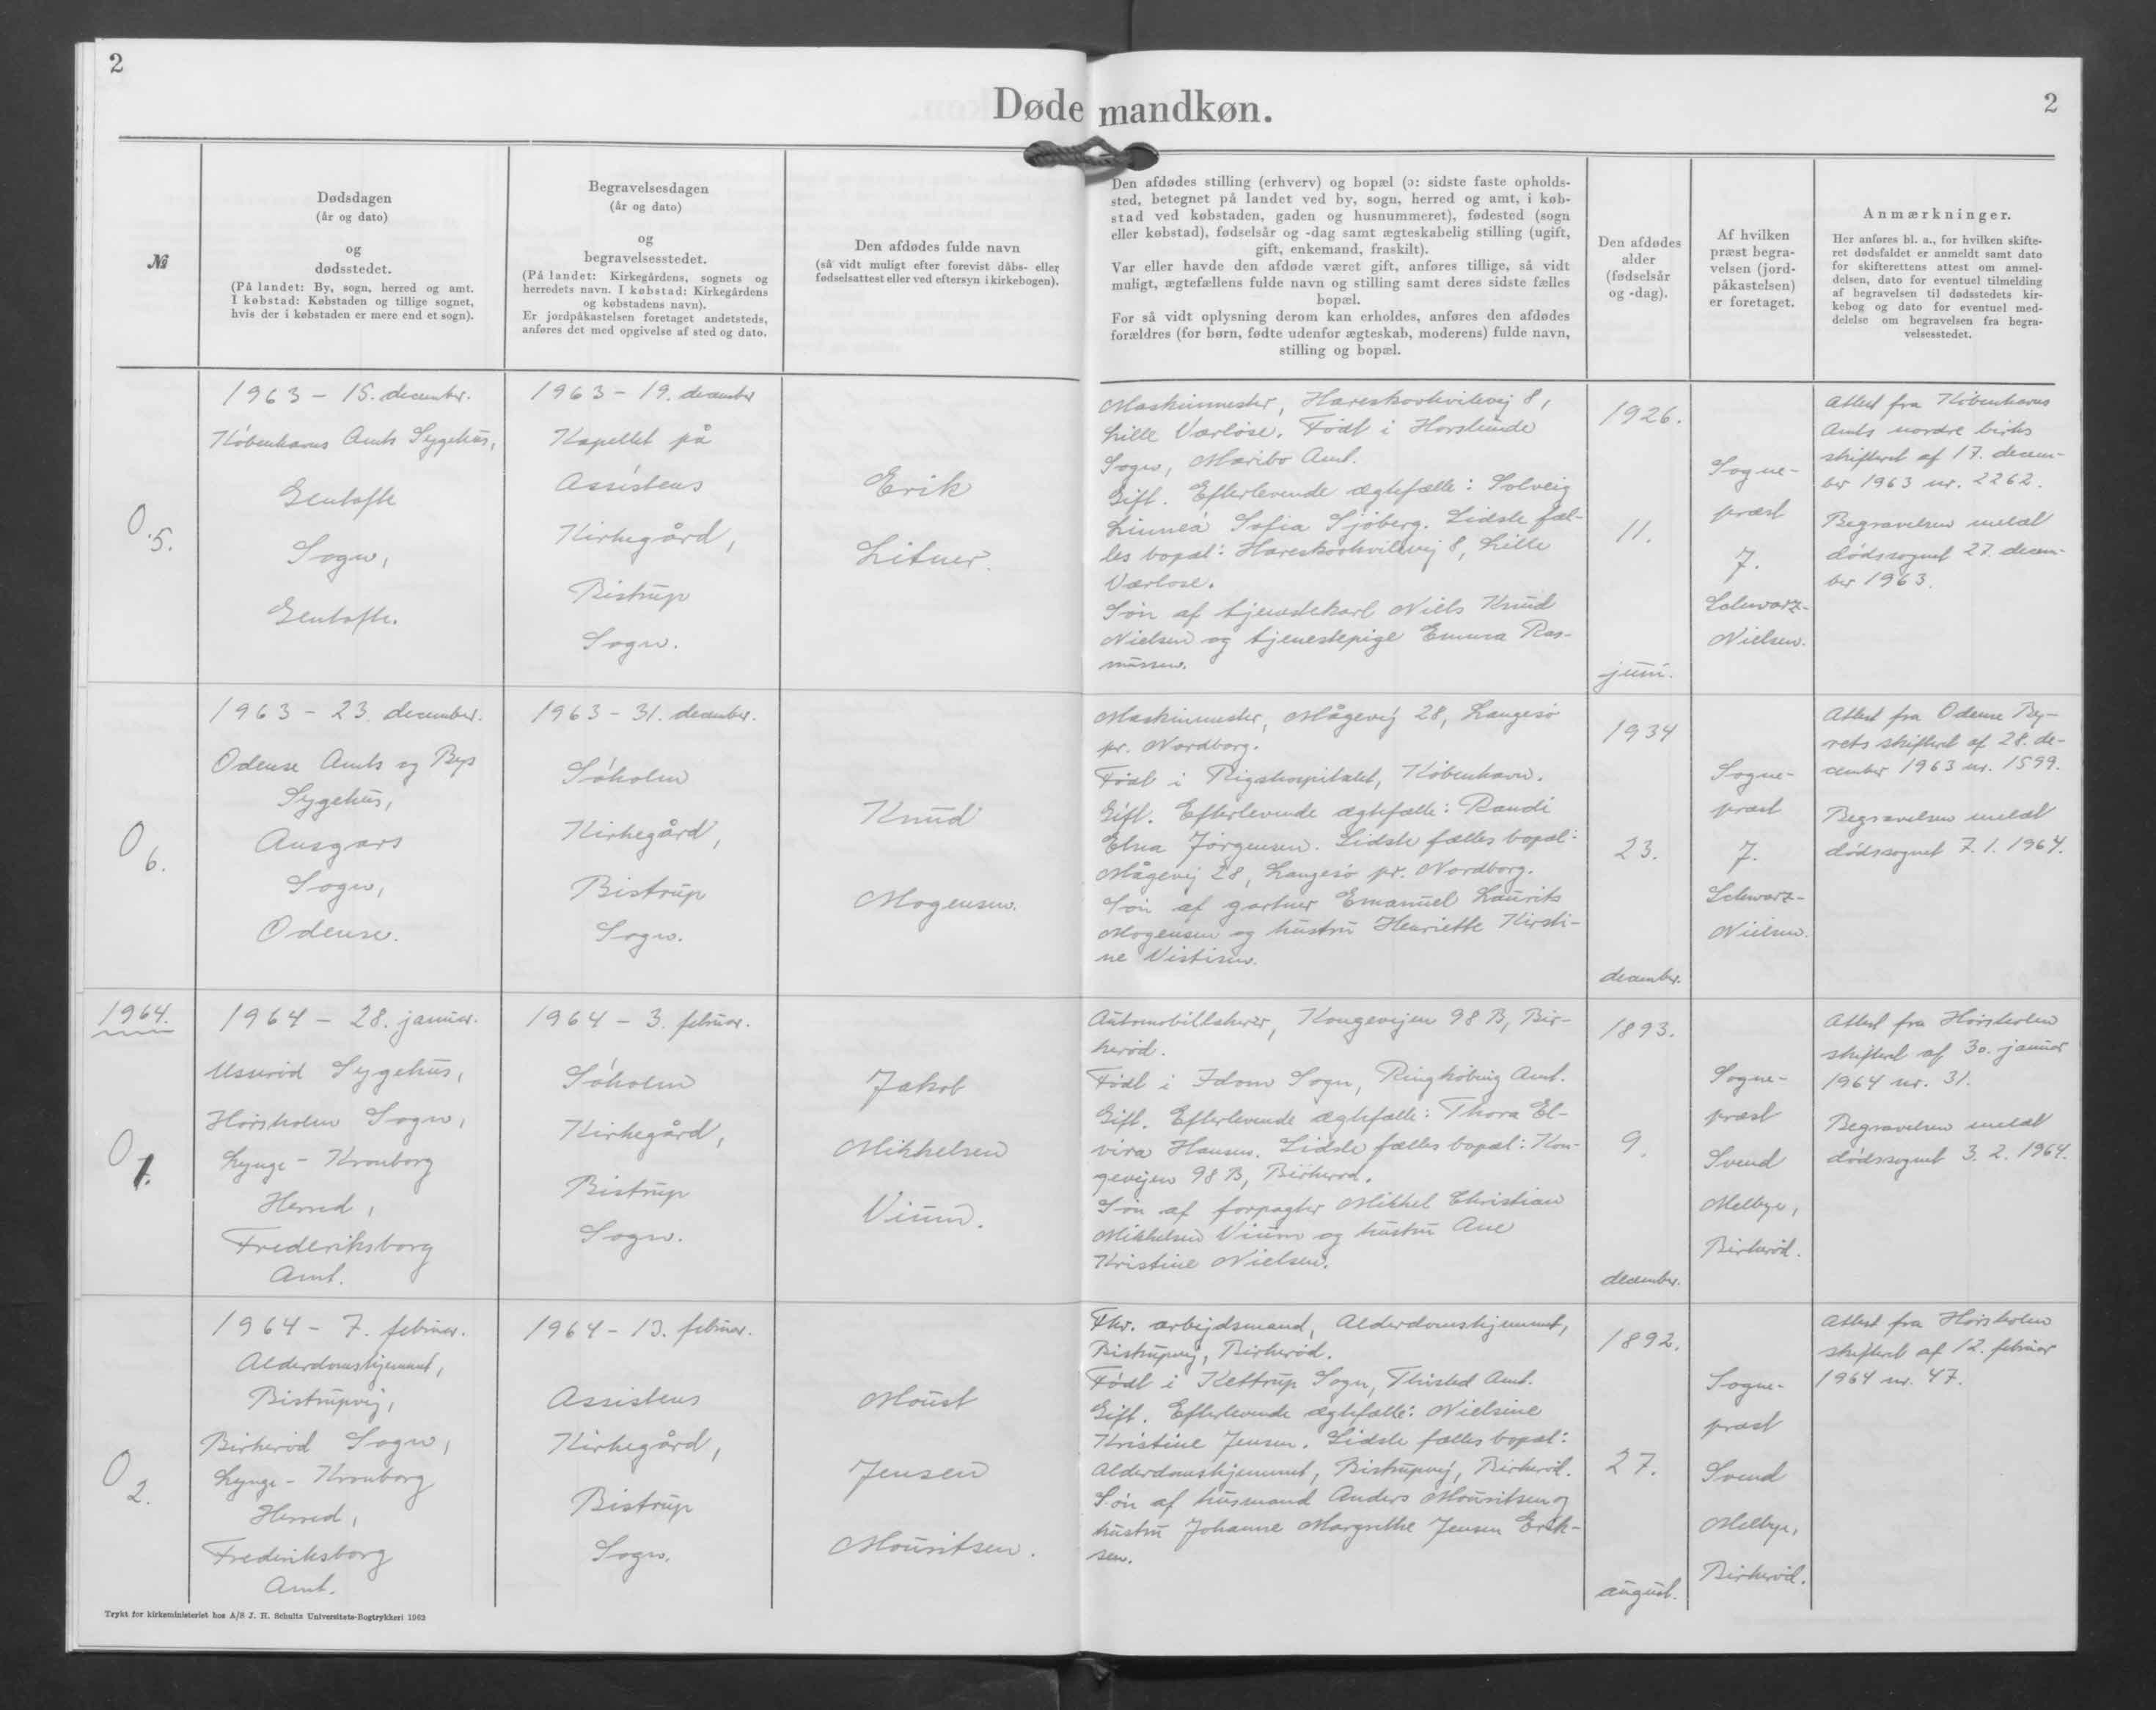 2
Døde mandkøn.
2
№
Dødsdagen
(år og dato)
og
dødsstedet.
(På landet: By, sogn, herred og amt.
I købstad: Købstaden og tillige sognet,
hvis der i købstaden er mere end et sogn).
Begravelsesdagen
(år og dato)
og
begravelsesstedet.
(På landet: Kirkegårdens, sognets og
herredets navn. I købstad: Kirkegårdens
og købstadens navn).
Er jordpåkastelsen foretaget andetsteds,
anføres det med opgivelse af sted og dato.
Den afdødes fulde navn
(så vidt muligt efter forevist dåbs- eller
fødselsattest eller ved eftersyn i kirkebogen).
Den afdødes stilling (erhverv) og bopæl (ɔ: sidste faste opholds-
sted, betegnet på landet ved by, sogn, herred og amt, i køb-
stad ved købstaden, gaden og husnummeret), fødested (sogn
eller købstad), fødselsår og -dag samt ægteskabelig stilling (ugift,
gift, enkemand, fraskilt).
Var eller havde den afdøde været gift, anføres tillige, så vidt
muligt, ægtefællens fulde navn og stilling samt deres sidste fælles
bopæl.
For så vidt oplysning derom kan erholdes, anføres den afdødes
forældres (for børn, fødte udenfor ægteskab, moderens) fulde navn,
stilling og bopæl.
Den afdødes
alder
(fødselsår
og -dag).
Af hvilken
præst begra-
velsen (jord-
påkastelsen)
er foretaget.
Anmærkninger.
Her anføres bl. a., for hvilken skifte-
ret dødsfaldet er anmeldt samt dato
for skifterettens attest om anmel-
delsen, dato for eventuel tilmelding
af begravelsen til dødsstedets kir-
kebog og dato for eventuel med-
delelse om begravelsen fra begra-
velsesstedet.
0.5.
1963 - 15. december.
Københavns Amts Sygehus,
Gentofte
Sogn,
Gentofte.
1963 - 19. december
Kapellet på
Assistens
Kirkegård,
Bistrup
Sogn.
Erik
Litner.
Maskinmester, Hareskovhvilevej 8,
Lille Værløse. Født i Horslunde
Sogn, Maribo Amt.
Gift. Efterlevende ægtefælle: Solveig
Linnea Sofia Sjöberg. Sidste fæl-
les bopæl: Hareskovhvilevej 8, Lille
Værløse.
Søn af tjenestekarl Niels Knud
Nielsen og tjenestepige Emma Ras-
mussen.
1926.
11.
juni.
Sogne-
præst
J.
Schwarz-
Nielsen.
Attest fra Københavns
Amts nordre birks
skifteret af 17. decem-
ber 1963 nr. 2262.
Begravelsen meldt
dødssognet 27. decem-
ber 1963.
0 6.
1963 - 23. december.
Odense Amts og Bys
Sygehus,
Ansgars
Sogn,
Odense.
1963 - 31. december.
Søholm
Kirkegård,
Bistrup
Sogn.
Knud
Mogensen.
Maskinmester, Mågevej 28, Langesø
pr. Nordborg.
Født i Rigshospitalet, København.
Gift. Efterlevende ægtefælle: Randi
Elna Jørgensen. Sidste fælles bopæl:
Mågevej 28, Langesø pr. Nordborg.
Søn af gartner Emanuel Laurits
Mogensen og hustru Henriette Kirsti-
ne Vistisen.
1934
23.
december.
Sogne-
præst
J.
Schwarz-
Nielsen.
Attest fra Odense By-
rets skifteret af 28. de-
cember 1963 nr. 1599.
Begravelsen meldt
dødssognet 7. 1. 1964.
1964.
0 1.
1964 - 28. januar.
Usserød Sygehus,
Hørsholm Sogn,
Lynge - Kronborg
Herred,
Frederiksborg
Amt.
1964 - 3. februar.
Søholm
Kirkegård,
Bistrup
Sogn.
Jakob
Mikkelsen
Vium.
Automobillakerer, Kongevejen 98 B, Bir-
kerød.
Født i Idom Sogn, Ringkøbing Amt.
Gift. Efterlevende ægtefælle: Thora El-
vira Hansen. Sidste fælles bopæl: Kon-
gevejen 98 B, Birkerød.
Søn af forpagter Mikkel Christian
Mikkelsen Vium og hustru Ane
Kristine Nielsen.
1893.
9.
december.
Sogne-
præst
Svend
Melbye,
Birkerød.
Attest fra Hørsholm
skifteret af 30. januar
1964 nr. 31.
Begravelsen meldt
dødssognet 3. 2. 1964.
0 2.
1964 - 7. februar.
Alderdomshjemmet,
Bistrupvej,
Birkerød Sogn,
Lynge - Kronborg
Herred,
Frederiksborg
Amt.
1964 - 13. februar.
Assistens
Kirkegård,
Bistrup
Sogn.
Moust
Jensen
Mouritsen.
Fhv. arbejdsmand, Alderdomshjemmet,
Bistrupvej, Birkerød.
Født i Kettrup Sogn, Thisted Amt.
Gift. Efterlevende ægtefælle: Nielsine
Kristine Jensen. Sidste fælles bopæl:
Alderdomshjemmet, Bistrupvej, Birkerød.
Søn af husmand Anders Mouritsen og
hustru Johanne Margrethe Jensen Erik-
sen.
1892.
27.
august.
Sogne-
præst
Svend
Melbye,
Birkerød.
Attest fra Hørsholm
skifteret af 12. februar
1964 nr. 47.
Trykt for kirkeministeriet hos A/S J. H. Schultz Universitets-Bogtrykkeri 1962